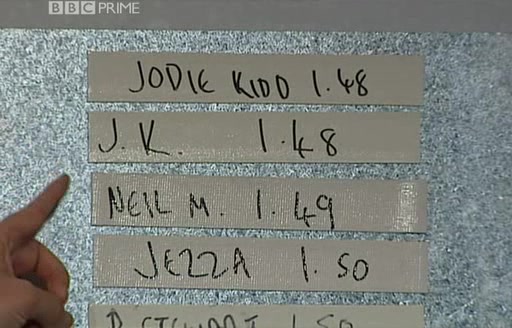 BBC PRIME
JODIE KIDD 1.48
J.K. 1.48
NEIL M. 1.49
JEZZA 1.50